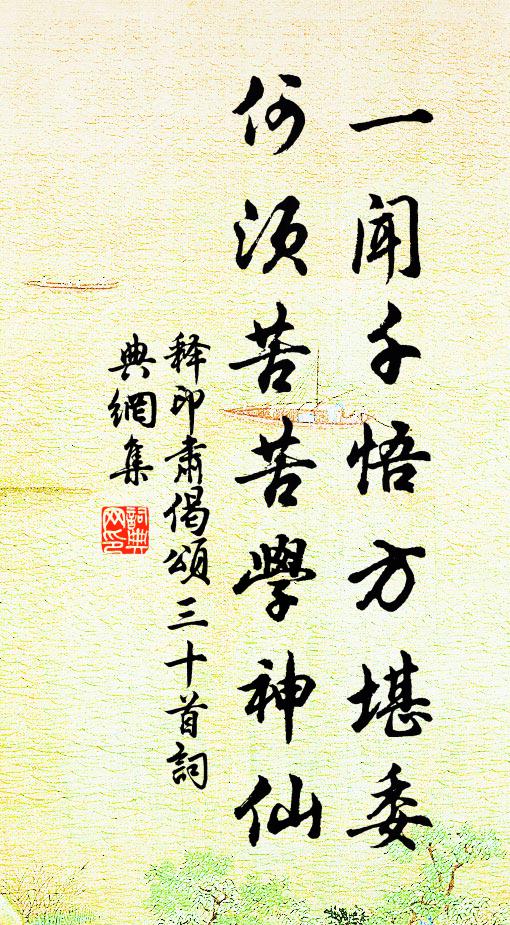 一闻千悟方堪委
何须苦苦学神仙
释印肃偈颂三十首詞
典網集
詞典
网印